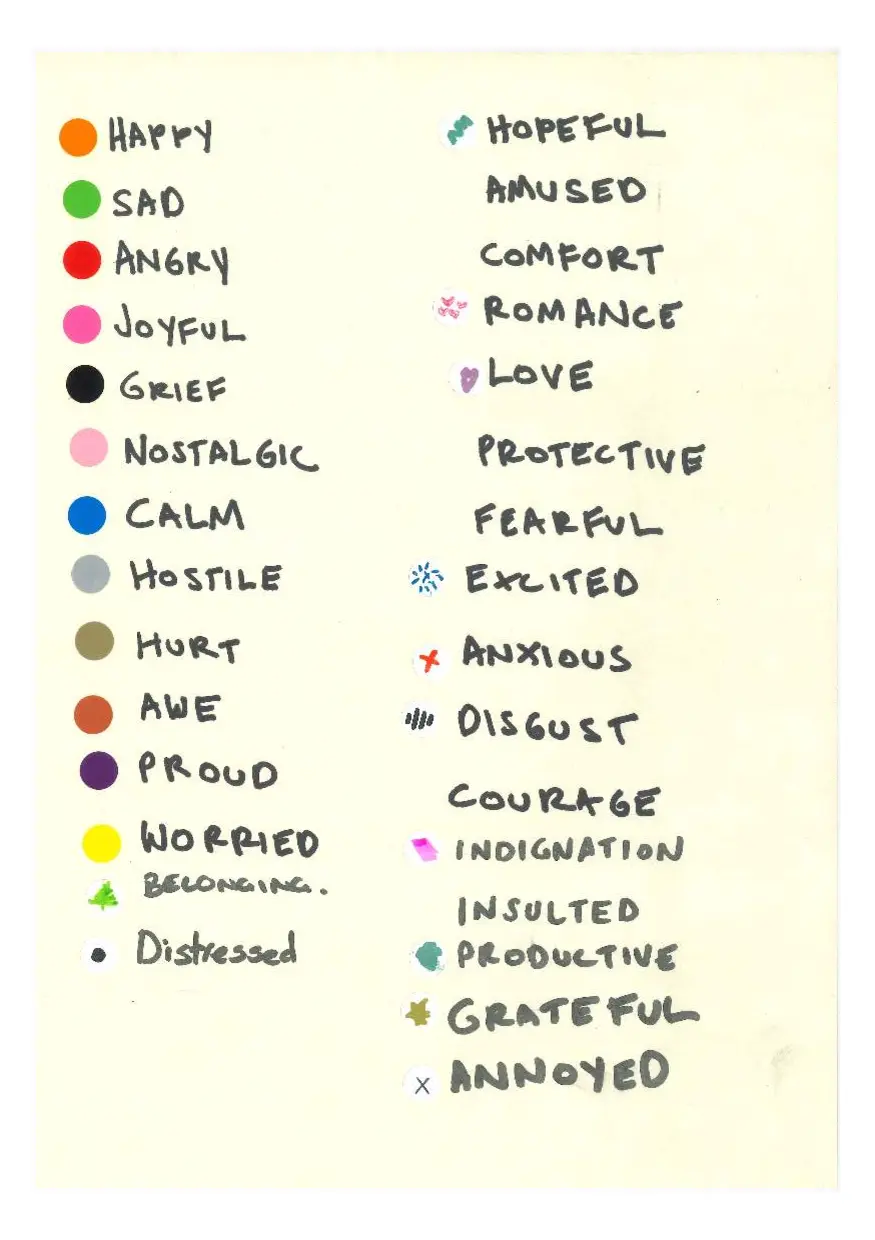 HAPPY
SAD
ANGRY
JOYFUL
GRIEF
NOSTALGIC
CALM
HOSTILE
HURT
AWE
PROUD
WORRIED
BELONGING.
Distressed
HOPEFUL
AMUSED
COMFORT
ROMANCE
LOVE
PROTECTIVE
FEARFUL
EXCITED
ANXIOUS
DISGUST
COURAGE
INDIGNATION
INSULTED
PRODUCTIVE
GRATEFUL
ANNOYED